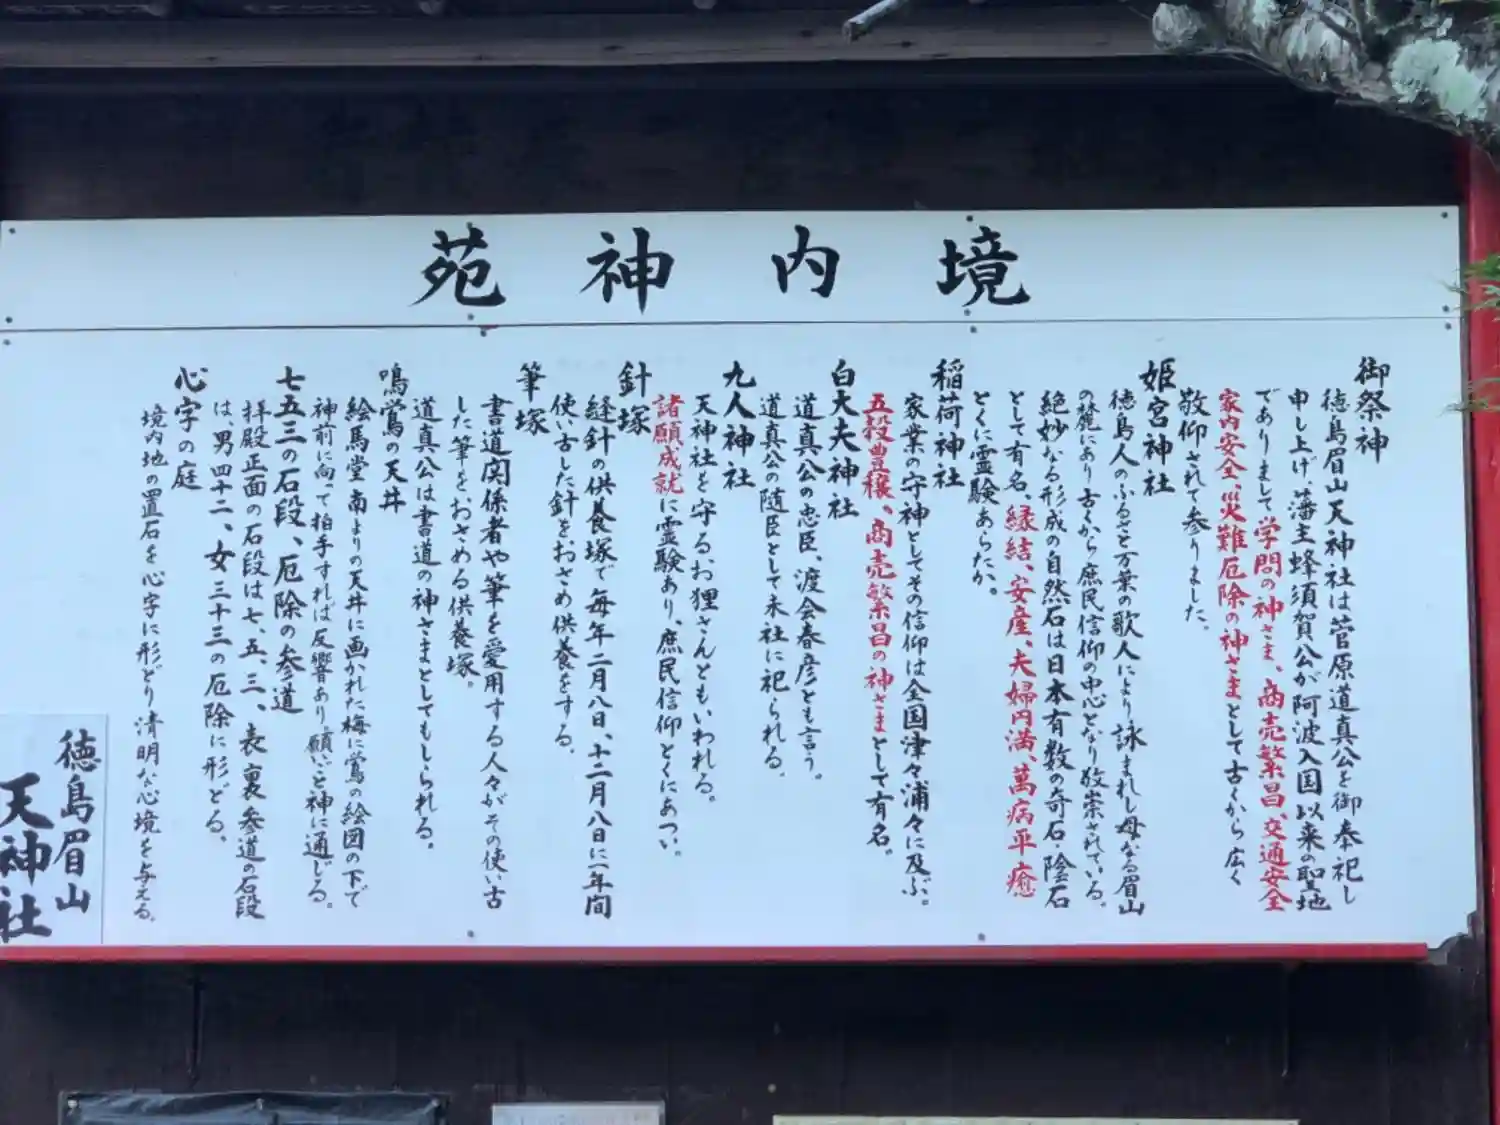 境内神苑
御祭神
徳島眉山天神社は菅原道真公を御奉祀し
申し上げ、藩主蜂須賀公が阿波入国以来の聖地
でありまして学問の神さま、商売繁昌、交通安全
家内安全、災難厄除の神さまとして古くから広く
敬仰されて参りました。
姫宮神社
徳島人のふるさと万葉の歌人により詠まれし母なる眉山
の麓にあり古くから庶民信仰の中心となり敬崇されている。
絶妙なる形成の自然石は日本有数の奇石・陰石
として有名、縁結、安産、夫婦円満、萬病平癒
とくに霊験あらたか。
稲荷神社
家業の守神としてその信仰は全国津々浦々に及ぶ。
五穀豊穣、商売繁昌の神さまとして有名。
白大夫神社
道真公の忠臣、渡会春彦とも言う。
道真公の随臣として末社に祀られる。
九人神社
天神社を守る、お狸さんともいわれる。
諸願成就に霊験あり、庶民信仰とくにあつい。
針塚
縫針の供養塚で毎年二月八日、十二月八日に一年間
使い古した針をおさめ供養をする。
筆塚
書道関係者や筆を愛用する人々がその使い古
した筆をおさめる供養塚。
道真公は書道の神さまとしてもしられる。
鳴鶯の天井
絵馬堂南よりの天井に画かれた梅に鶯の絵図の下で
神前に向って拍手すれば反響あり願いごと神に通じる。
七五三の石段、厄除の参道
拝殿正面の石段は七、五、三、表裏参道の石段
は、男四十二、女三十三の厄除に形どる。
心字の庭
境内地の置石を心字に形どり清明な心境を与える。
徳島眉山
天神社